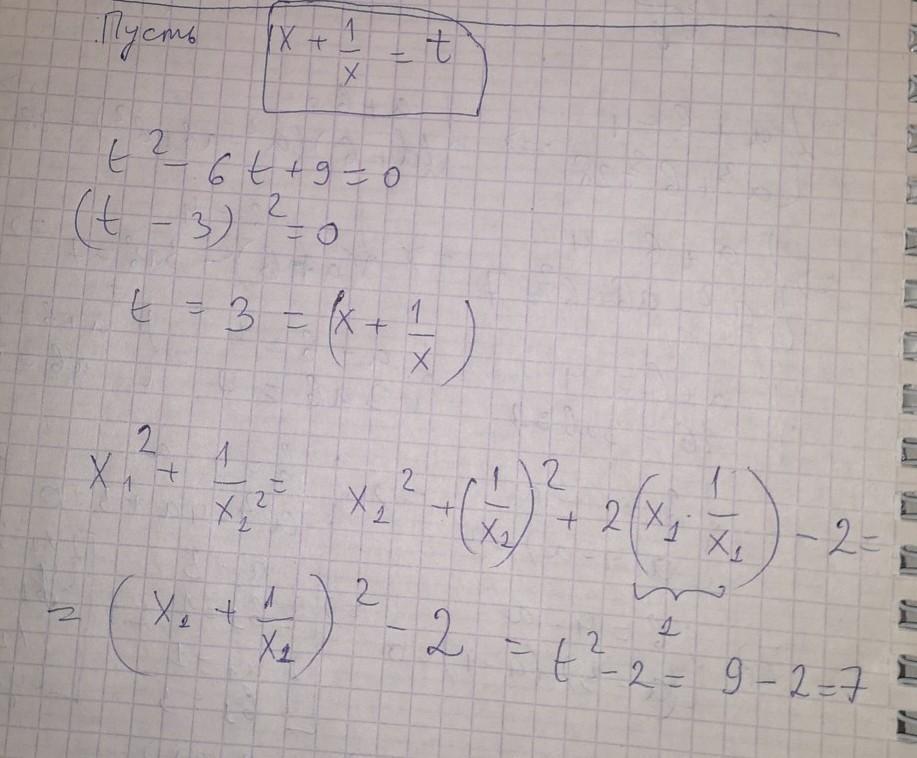 Пусть x + 1/x = t
t² - 6t + 9 = 0
(t - 3)² = 0
t = 3 = (x + 1/x)
x₁² + 1/x₁² = x₁² + (1/x₁)² + 2(x₁ · 1/x₁) - 2 =
1
= (x₁ + 1/x₁)² - 2 = t² - 2 = 9 - 2 = 7